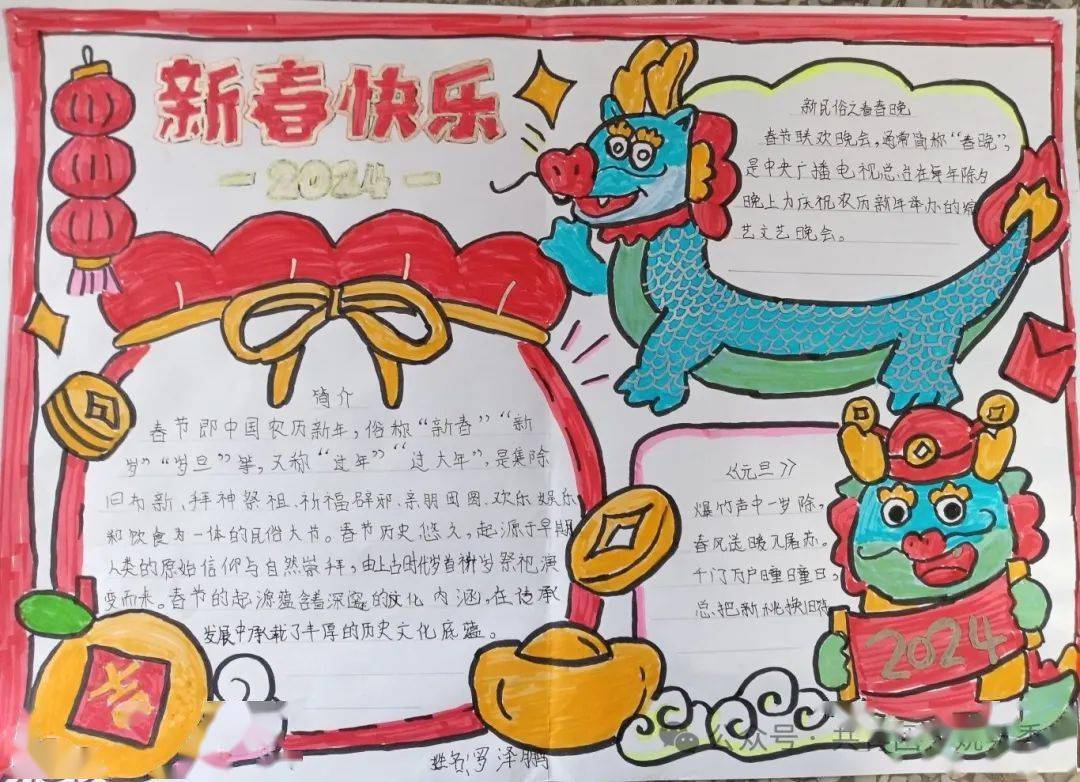 新春快乐
2024
新民俗之看春晚
春节联欢晚会，通常简称“春晚”，
是中央广播电视总台在每年除夕
晚上为庆祝农历新年举办的综
艺文艺晚会。
简介
春节即中国农历新年，俗称“新春”“新
岁”“岁旦”等，又称“过年”“过大年”，是集除
旧布新、拜神祭祖、祈福辟邪、亲朋团圆、欢乐娱乐
和饮食为一体的民俗大节。春节历史悠久，起源于早期
人类的原始信仰与自然崇拜，由上古时代岁首祈岁祭祀演
变而来。春节的起源蕴含着深邃的文化内涵，在传承
发展中承载了丰厚的历史文化底蕴。
《元旦》
爆竹声中一岁除，
春风送暖入屠苏。
千门万户曈曈日，
总把新桃换旧符
2024
姓名：罗泽鹏
公众号·共